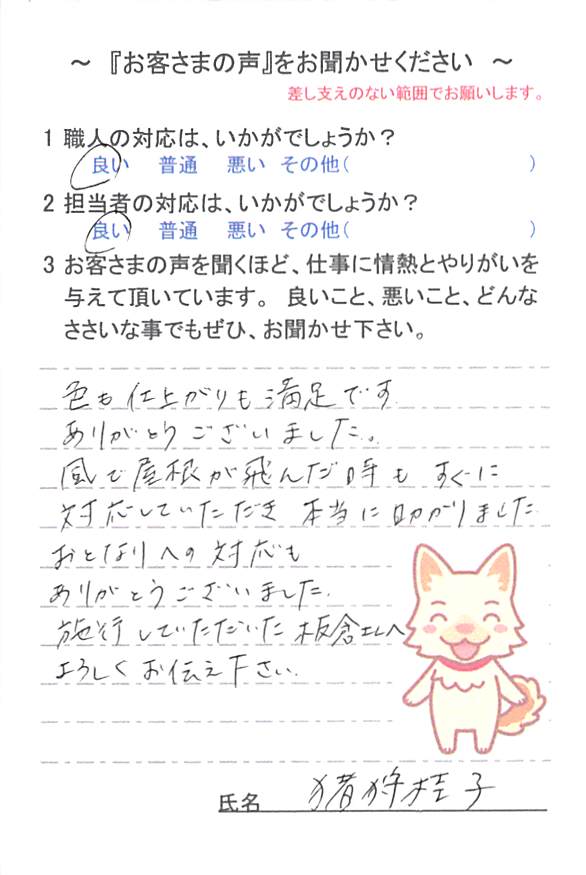 ～ 『お客さまの声』をお聞かせください ～
差し支えのない範囲でお願いします。
1 職人の対応は、いかがでしょうか？
良い 普通 悪い その他( )
2 担当者の対応は、いかがでしょうか？
良い 普通 悪い その他( )
3 お客さまの声を聞くほど、仕事に情熱とやりがいを
与えて頂いています。 良いこと、悪いこと、どんな
ささいな事でもぜひ、お聞かせ下さい。
色も仕上がりも満足です
ありがとうございました。
風で屋根が飛んだ時も すぐに
対応していただき 本当に助かりました
おとなりへの対応も
ありがとうございました.
施行していただいた 板倉さんへ
よろしくお伝え下さい.
氏名 猪狩桂子